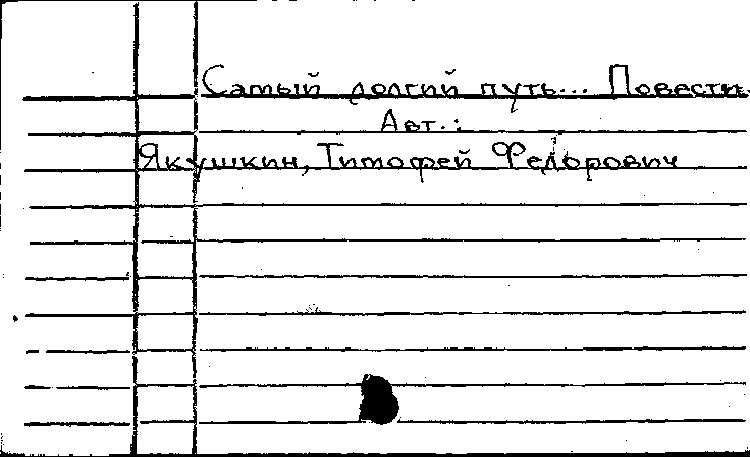 Самый долгий путь... Повести.
Авт.:
Якушкин, Тимофей Федорович